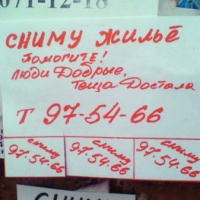 071-12-18
СНИМУ ЖИЛЬЁ
ПОМОГИТЕ!
ЛЮДИ ДОБРЫЕ,
Теща Достала
Т 97-54-66
СНИМУ
97-54-66
СНИМУ
97-54-66
СНИМУ
97-54-66
СНИМУ